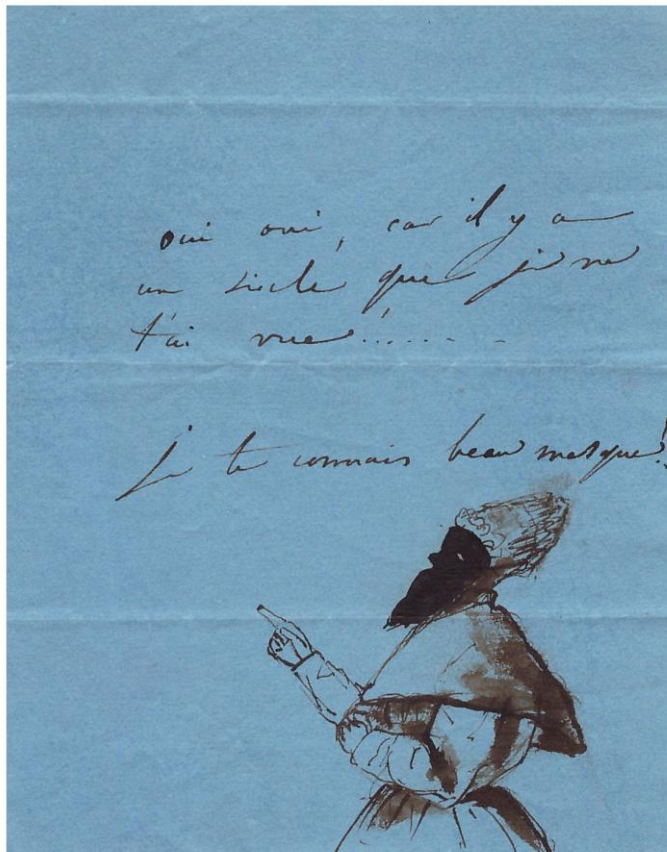 oui oui, car il y a
un siecle que je ne
t'ai vue !......
je te connais beau masque !